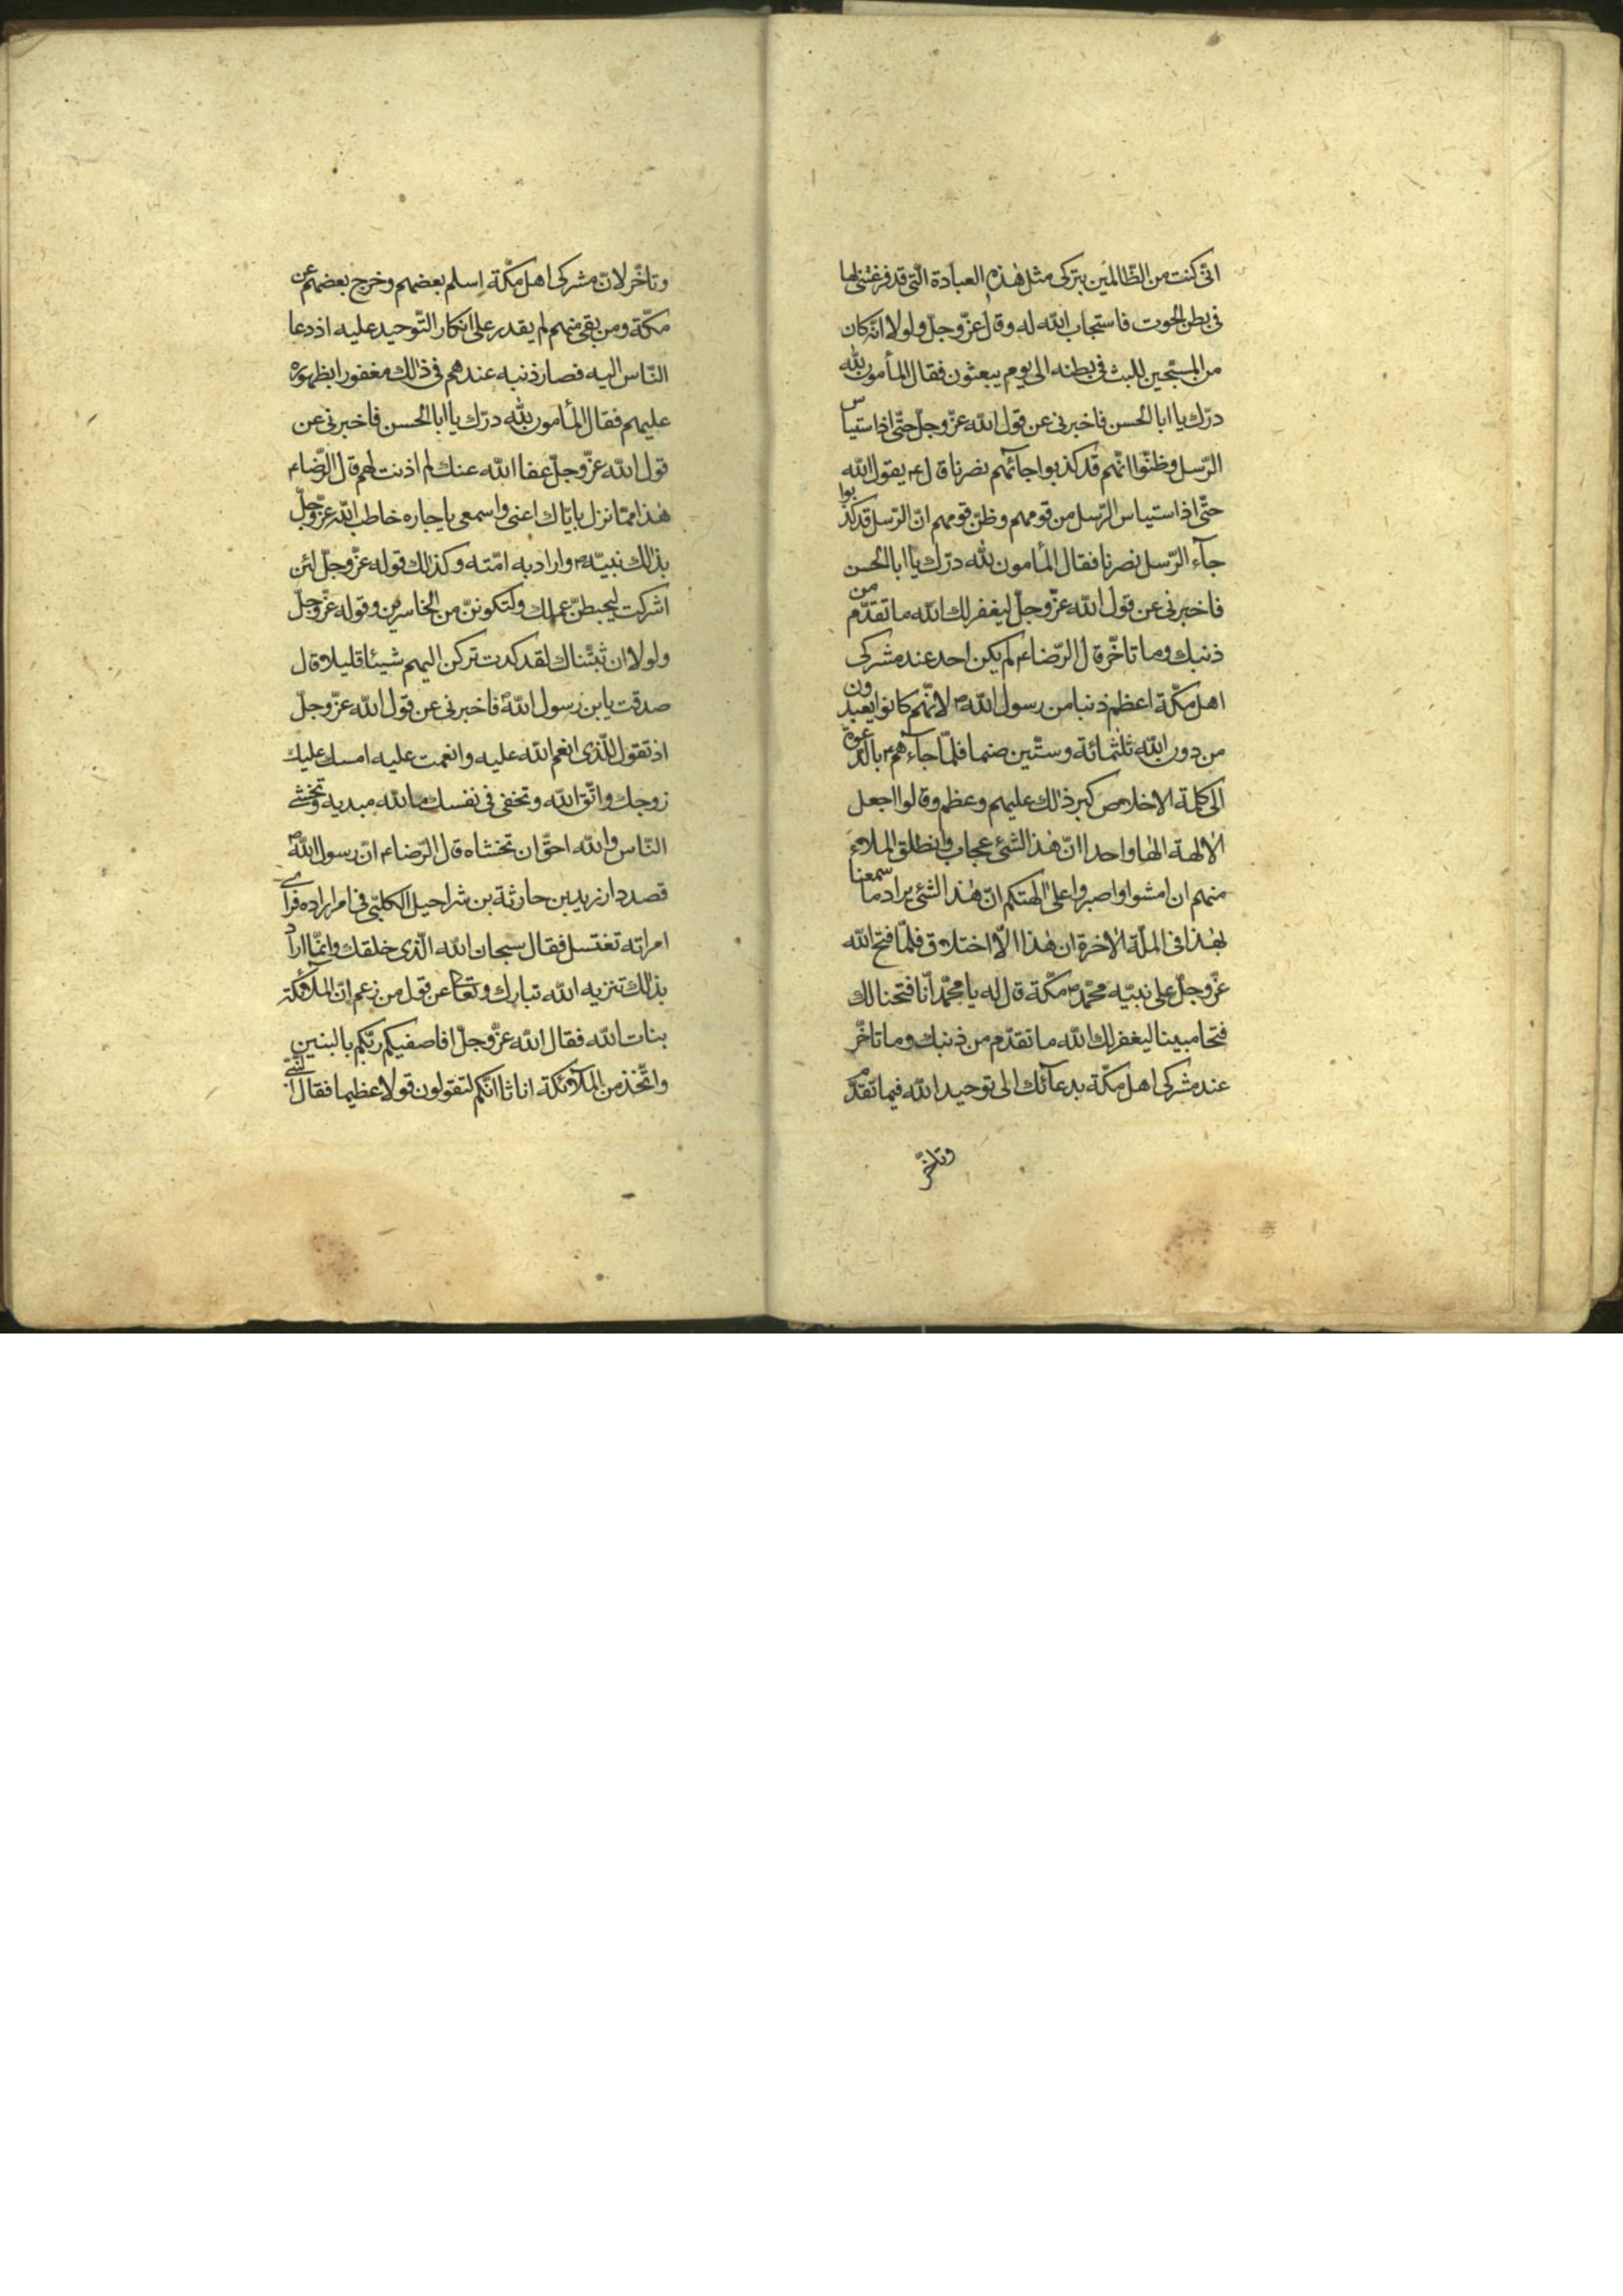 انّى كنت من الظّالمين بتركى مثل هٰذه العبادة الّتى قد فرغتنى لها
فى بطن الحوت فاستجاب الله له وقال عزّ وجلّ ولولا انّه كان
من المسبّحين للبث فى بطنه الى يوم يبعثون فقال المأمون لله
درّك يا ابا الحسن فاخبرنى عن قول الله عزّ وجلّ حتّى اذا استياس
الرّسل وظنّوا انّهم قد كذبوا جآئهم نصرنا قال ع يقول الله
حتّى اذا استياس الرّسل من قومهم وظنّ قومهم انّ الرّسل قد كذّبوا
جآء الرّسل نصرنا فقال المأمون لله درّك يا ابا الحسن
فاخبرنى عن قول الله عزّ وجلّ ليغفر لك الله ما تقدّم من
ذنبك وما تاخّر قال الرّضا ع لم يكن احد عند مشركى
اهل مكّة اعظم ذنبا من رسول الله ص لانّهم كانوا يعبدون
من دون الله ثلثمائة وستّين صنما فلمّا جآءهم ع بالدّعوة
الى كلمة الاخلاص كبر ذٰلك عليهم وعظم وقالوا اجعل
الالهة الٰها واحدا انّ هٰذا لشئ عجاب وانطلق الملاء
منهم ان امشوا واصبروا على الهتكم انّ هٰذا لشئ يراد ما سمعنا
بهٰذا فى الملّة الاخرة ان هٰذا الّا اختلاق فلمّا فتح الله
عزّ وجلّ على نبيّه محمّد ص مكّة قال له يا محمّد انّا فتحنا لك
فتحا مبينا ليغفر لك الله ما تقدّم من ذنبك وما تاخّر
عند مشركى اهل مكّة بدعآئك الى توحيد الله فيما تقدّم
وتاخّر
وتاخّر لانّ مشركى اهل مكّة اسلم بعضهم وخرج بعضهم عن
مكّة ومن بقى منهم لم يقدر على انكار التّوحيد عليه اذ دعا
النّاس اليه فصار ذنبه عندهم فى ذٰلك مغفورا بظهوره
عليهم فقال المأمون لله درّك يا ابا الحسن فاخبرنى عن
قول الله عزّ وجلّ عفا الله عنك لم اذنت لهم قال الرّضا ع
هٰذا ممّا نزل بايّاك اعنى واسمعى يا جاره خاطب الله عزّ وجلّ
بذٰلك نبيّه ص واراد به امّته وكذٰلك قوله عزّ وجلّ لئن
اشركت ليحبطنّ عملك ولتكوننّ من الخاسرين وقوله عزّ وجلّ
ولولا ان ثبّتناك لقد كدت تركن اليهم شيئا قليلا وقال
صدقت يابن رسول الله ص فاخبرنى عن قول الله عزّ وجلّ
اذ تقول للّذى انعم الله عليه وانعمت عليه امسك عليك
زوجك واتّق الله وتخفى فى نفسك ما الله مبديه وتخشى
النّاس والله احقّ ان تخشاه قال الرّضا ع انّ رسول الله ص
قصد دار زيد بن حارثة بن شراحيل الكلبّى فى امر اراده فراى
امراته تغتسل فقال سبحان الله الّذى خلقك وانّما اراد
بذٰلك تنزيه الله تبارك وتعالى عن قول من زعم انّ الملآئكة
بنات الله فقال الله عزّ وجلّ افاصفيكم ربّكم بالبنين
واتّخذ من الملآئكة اناثا انّكم لتقولون قولا عظيما فقال النّبىّ